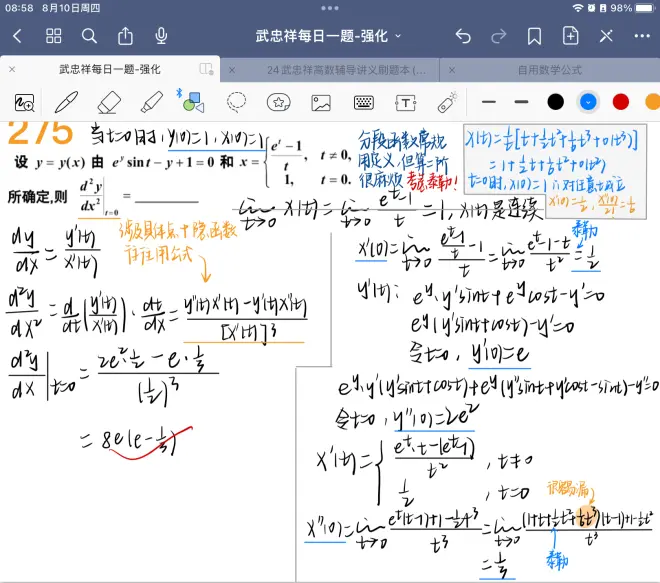 08:58 8月10日周四
98%
武忠祥每日一题-强化
武忠祥每日一题-强化
24武忠祥高数辅导讲义刷题本 (...
自用数学公式
275 当t=0时, y(0)=1, x(0)=1
设 y = y(x) 由 e^y sin t − y + 1 = 0 和 x = { (e^t − 1)/t, t ≠ 0, 1, t = 0.
所确定,则 d²y/dx² |_{t=0} = ________
分段函数常规
用定义,但算二阶
很麻烦 考虑泰勒!
x(t)=1/t[t+1/2t²+1/6t³+o(t³)]
=1+1/2t+1/6t²+o(t²)
t=0时, x(0)=1 ∴对任意t成立
x'(0)=1/2, x''(0)/2!=1/6
lim_{t→0} x(t)=lim_{t→0} (e^t-1)/t=1, x(t)是连续
dy/dx=y'(t)/x'(t)
涉及具体点+隐函数
往往用公式
d²y/dx²=d/dt(y'(t)/x'(t))·dt/dx=(y''(t)x'(t)-y'(t)x''(t))/[x'(t)]³
d²y/dx|_{t=0}=(2e²·1/2-e·1/3)/(1/2)³
=8e(e-1/3)
x'(0)=lim_{t→0} ((e^t-1)/t-1)/t=lim_{t→0} (e^t-1-t)/t²=1/2
泰勒
y'(t): e^y·y'sint+e^y cost-y'=0
e^y(y'sint+cost)-y'=0
令t=0, y'(0)=e
e^y·y'(y'sint+cost)+e^y(y''sint+y'cost-sint)-y''=0
令t=0, y''(0)=2e²
x'(t)={ (e^t·t-(e^t-1))/t², t≠0
1/2, t=0
识别漏
x''(0)=lim_{t→0} (e^t(t-1)+1-1/2t²)/t³=lim_{t→0} ((1+t+1/2t²+1/6t³)(t-1)+1-1/2t²)/t³
=1/3
泰勒